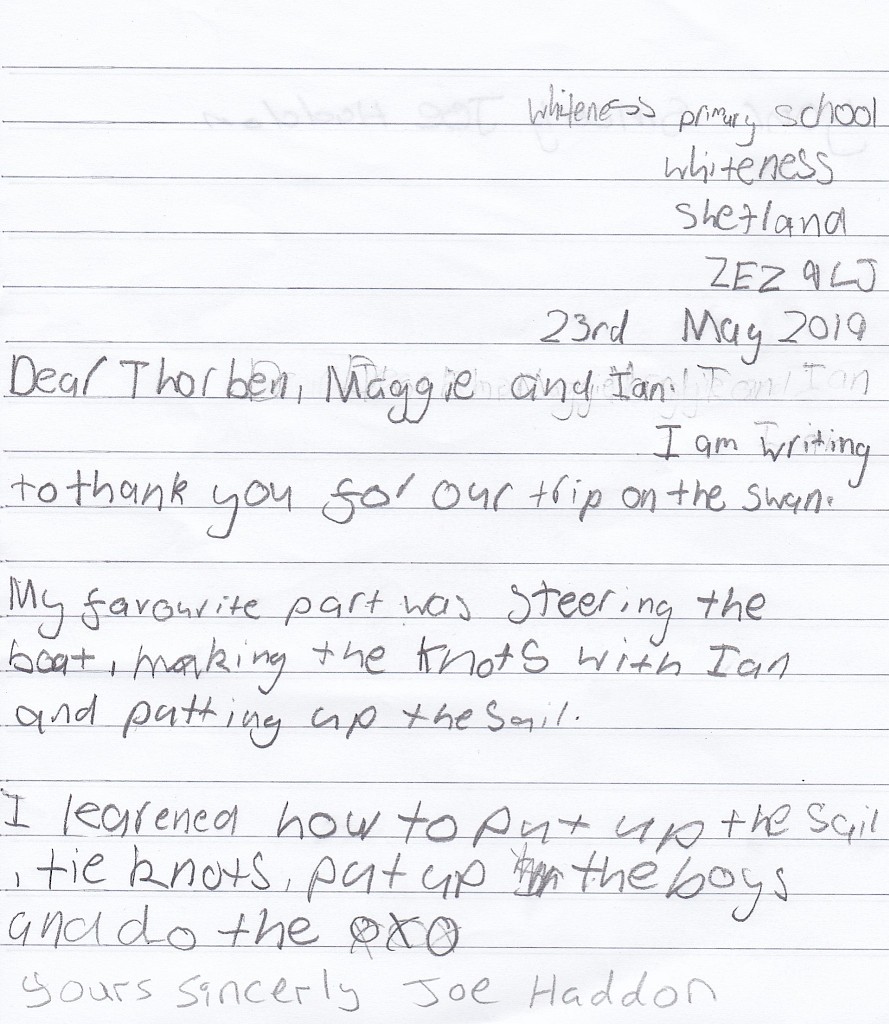 whiteness primary school
whiteness
Shetland
ZE2 9LJ
23rd May 2019
Dear Thorben, Maggie and Ian!
I am writing
to thank you for our trip on the swan.
My favourite part was steering the
boat, making the knots with Ian
and putting up the sail.
I learened how to put up the sail
, tie knots, put up the boys
and do the oxo
yours sincerly Joe Haddon